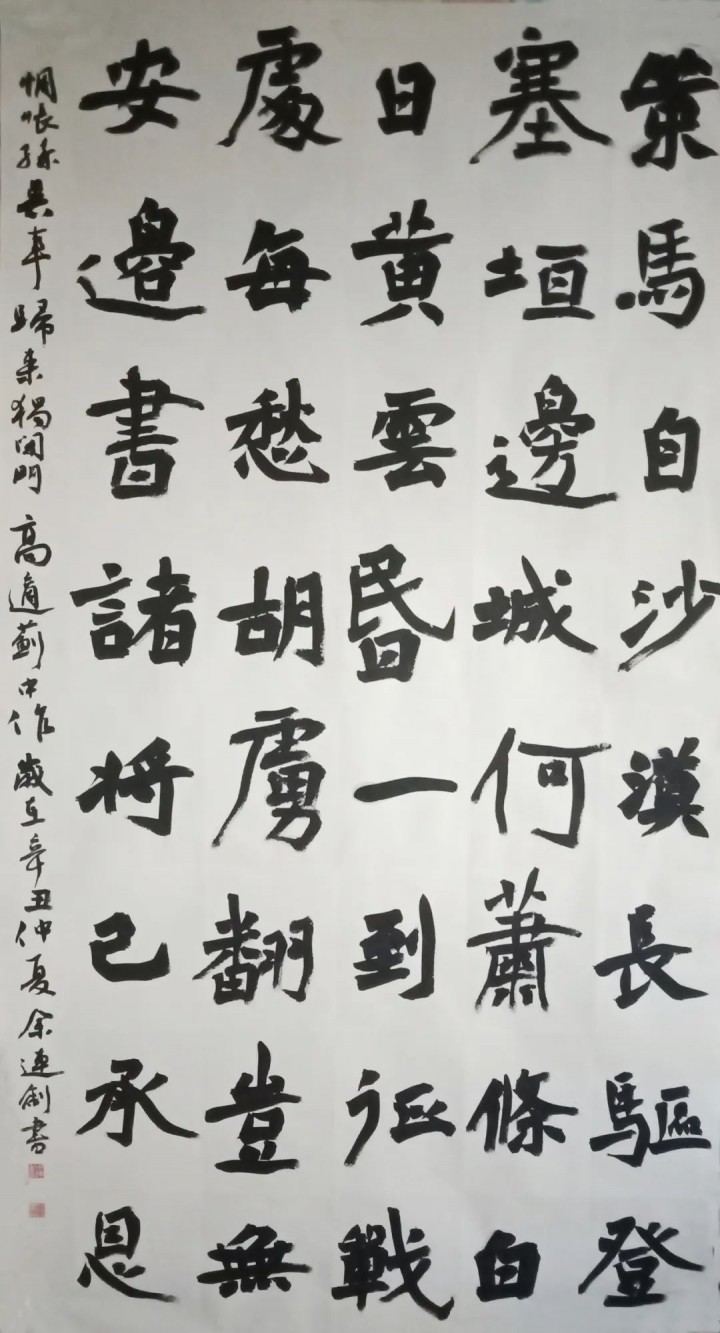 策馬自沙漠長驅登
塞垣邊城何蕭條白
日黃雲昬一到征戰
處每愁胡虜翻豈無
安邊書諸將已承恩
惆悵孫吳事歸來獨閉門 高適薊中作 歲在辛丑仲夏 余連書